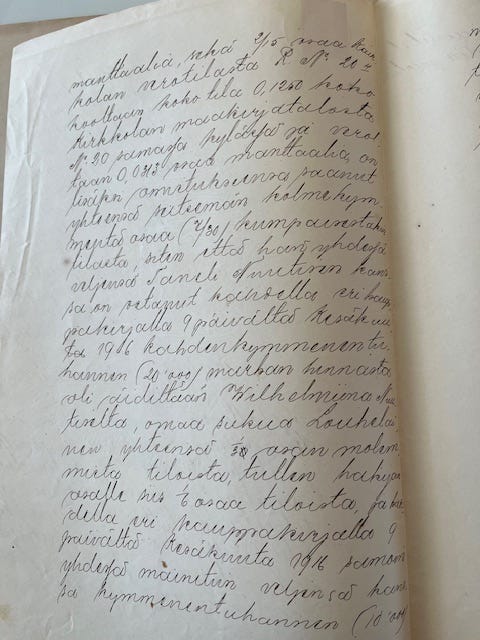 manttaalia, sekä 2/15 osaa Kirk-
kolan verotilasta R Nº 20
kooltaan koko tila 0,1250 koko
Kirkkolan maakirjatalosta
Nº 20 samassa kylässä ja verol-
taan 0,0313 osaa manttaalia, on
lisäksi omistukseensa saanut
yhteensä seitsemän kolmekym-
mentä osaa (7/30) kumpaisestakin
tilasta, siten että hän yhdessä
veljensä Taneli Nuutisen kans-
sa on ostanut kahdella eri kaup-
pakirjalla 9 päivältä Kesäkuu-
ta 1916 kahdenkymmenentu-
hannen (20'000) markan hinnasta
äidiltään Wilhelmiina Nuu-
tiselta, omaa sukua Louhelai-
nen, yhteensä osan molem-
mista tiloista, tullen hakijan
osalle siis osaa tiloista, ja kah-
della eri kauppakirjalla 9
päivältä Kesäkuuta 1916 samoin
yhdessä mainitun veljensä kans-
sa kymmenentuhannen (10'000)